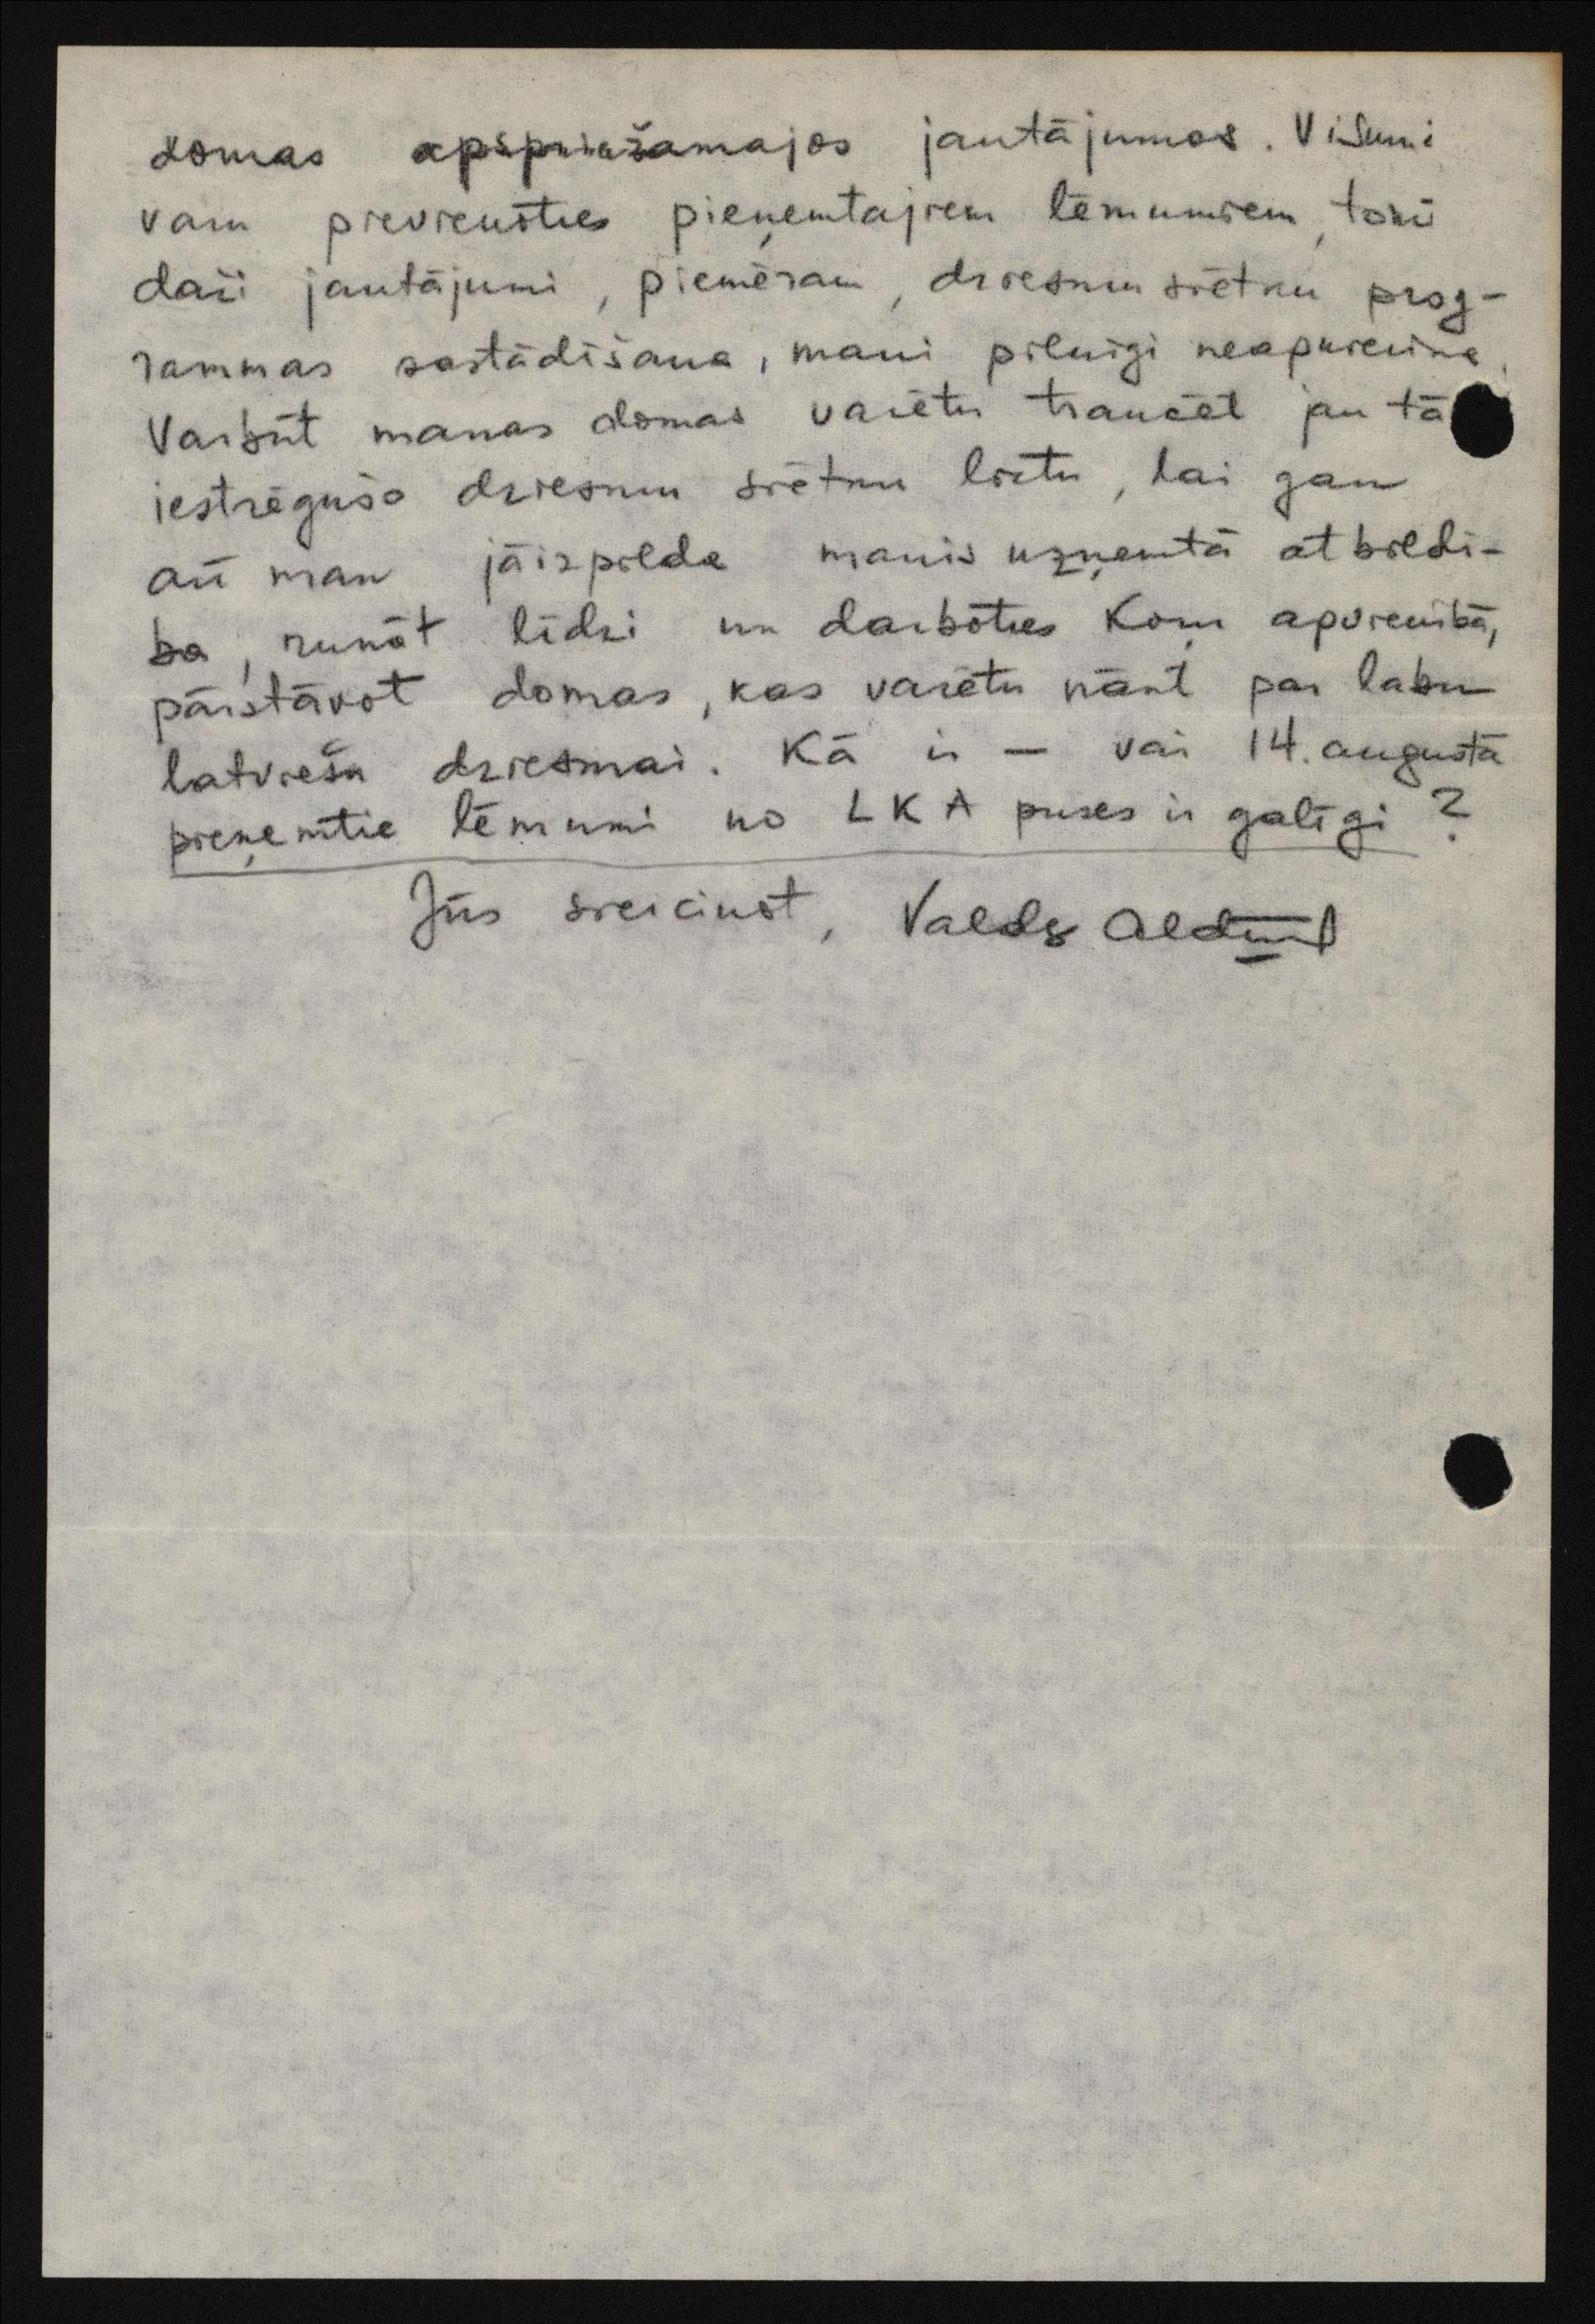 domas apspriežamajos jautājumos. Visumā
varu pievienoties pieņemtajiem lēmumiem, tomēr
daži jautājumi, piemēram, dziesmu svētku prog-
rammas sastādīšana, mani pilnīgi neapmierina.
Varbūt manas domas varētu traucēt jau tā
iestrēgušo dziesmu svētku lietu, lai gan
arī man jāizpilda manis uzņemtā atbildī-
ba, runāt līdzi un darboties Koŗu apvienībā,
pārstāvot domas, kas varētu nākt par labu
latviešu dziesmai. Kā ir – vai 14. augustā
pieņemtie lēmumi no LKA puses ir galīgi?
Jūs sveicinot, Valds